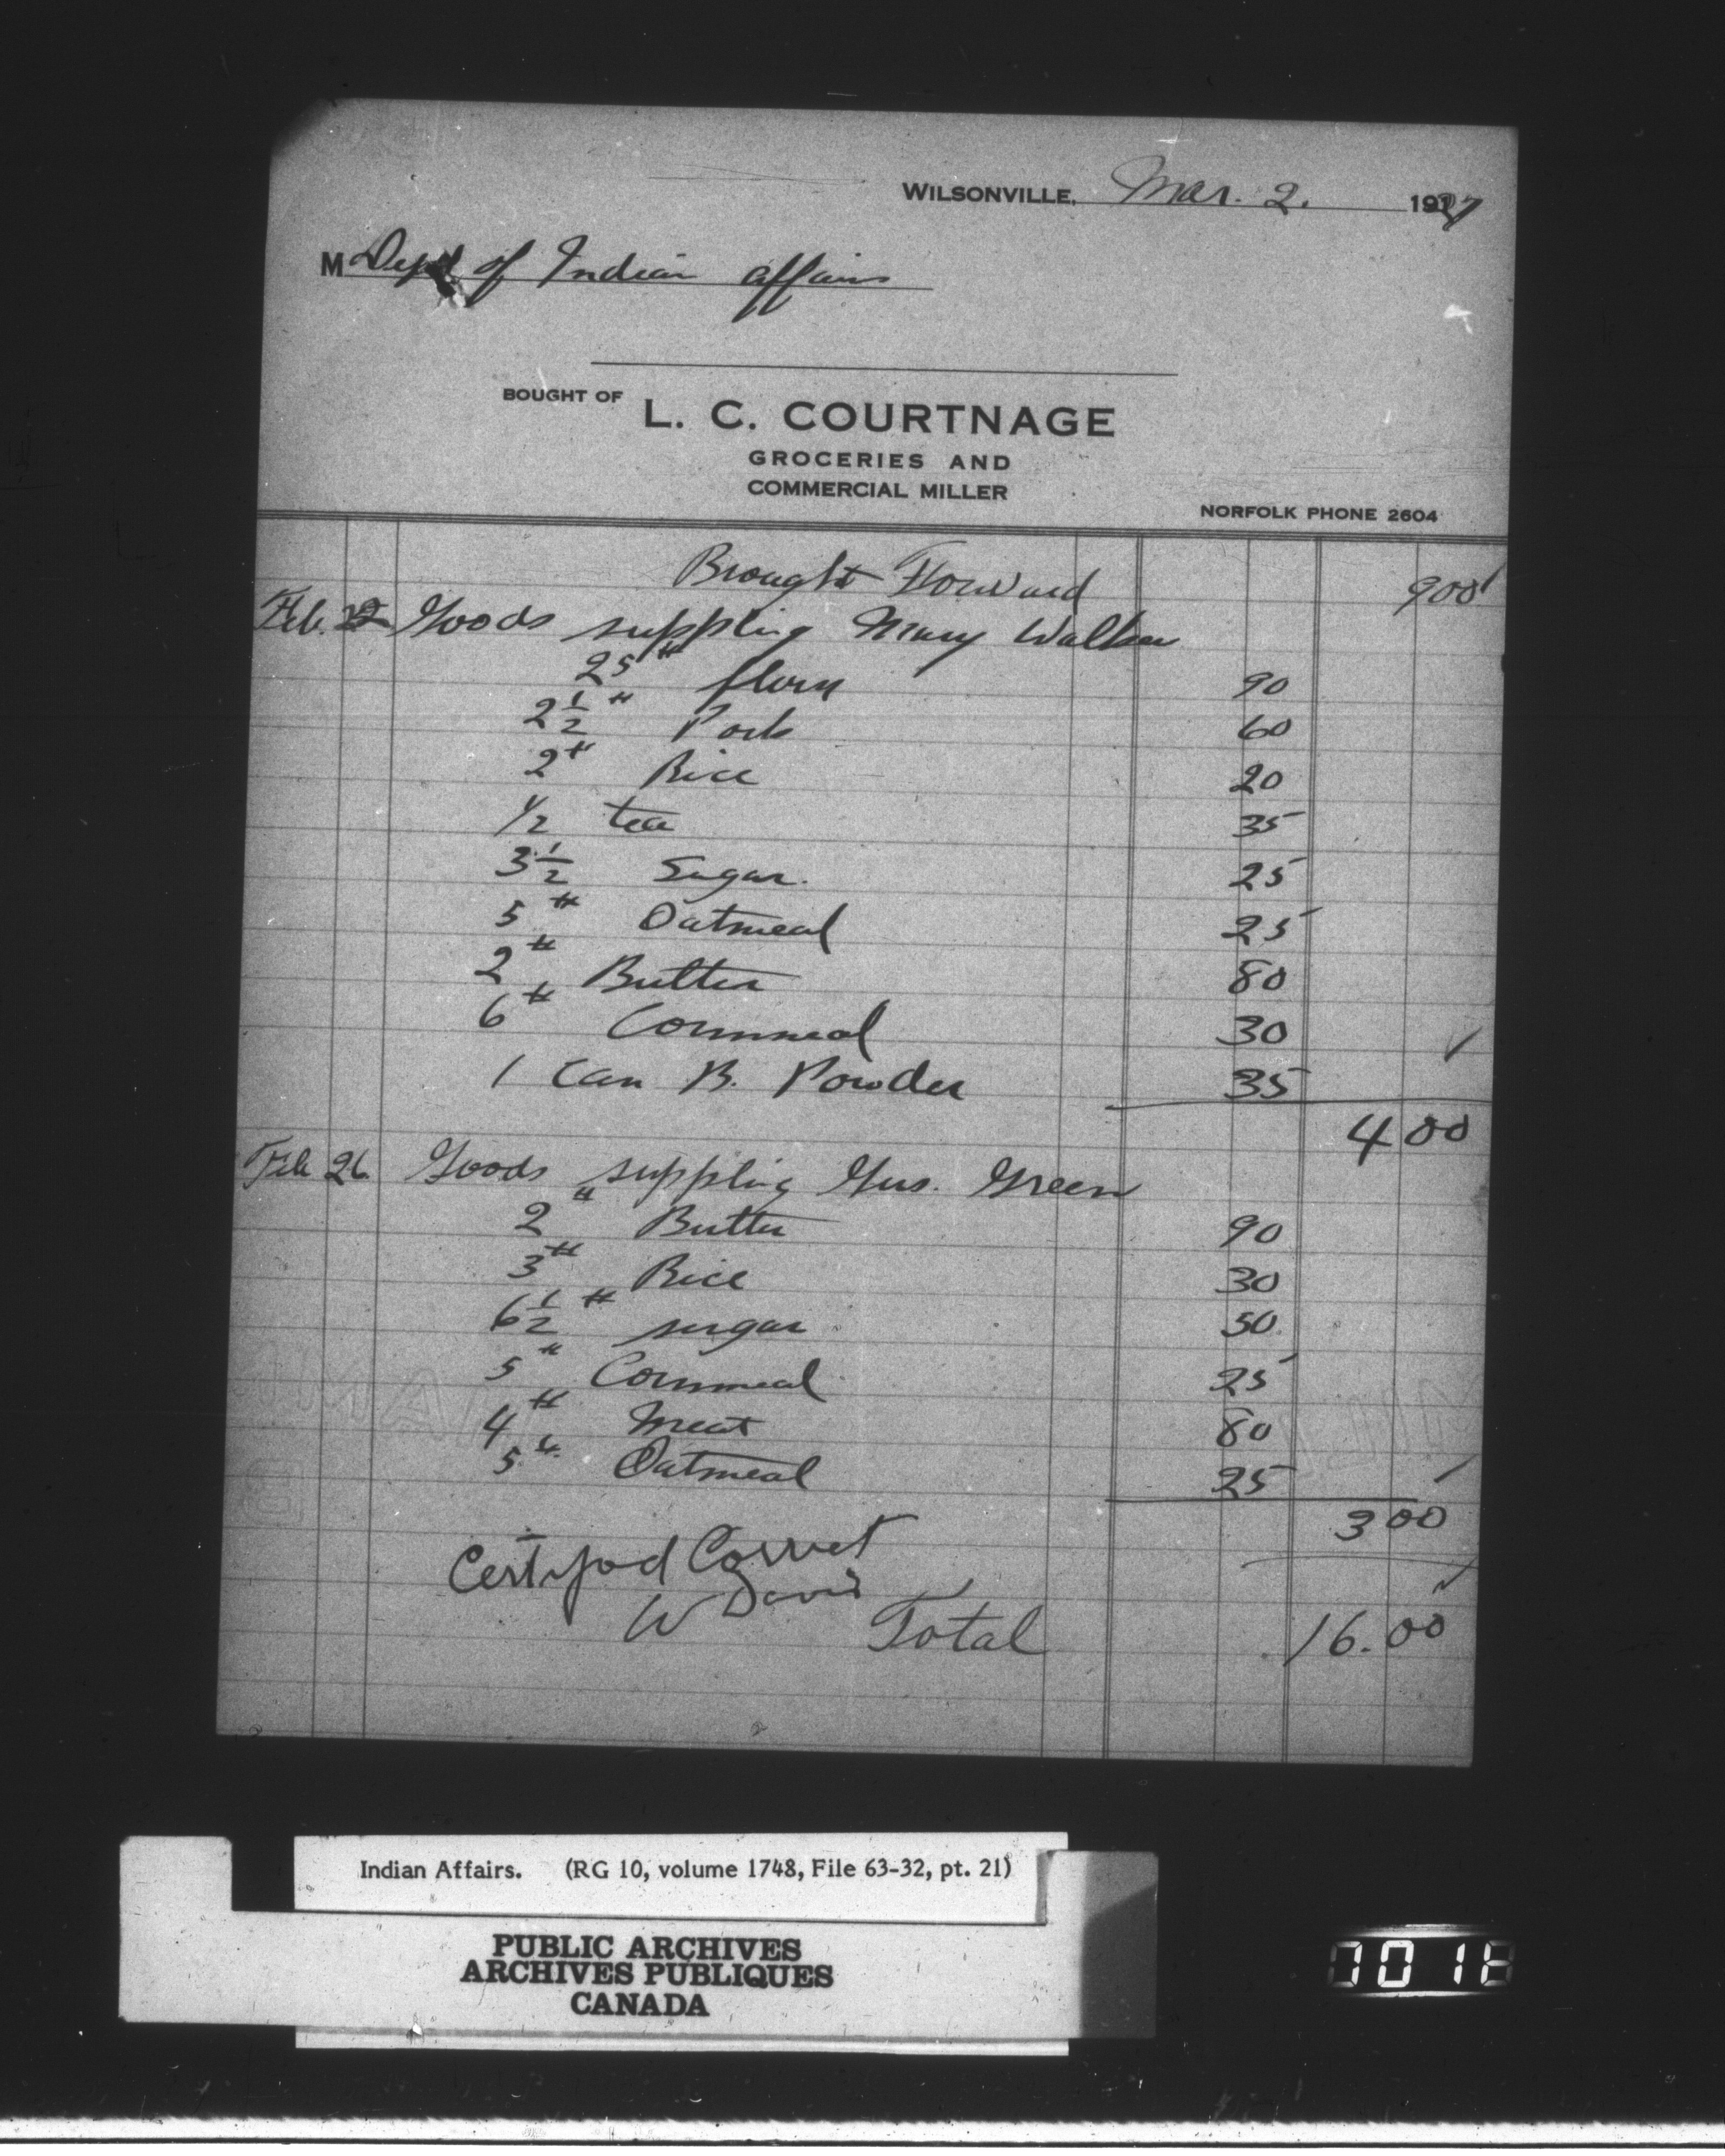 WILSONVILLE, Mar. 2. 1927
M Dept of Indian affairs
BOUGHT OF L. C. COURTNAGE
GROCERIES AND
COMMERCIAL MILLER
NORFOLK PHONE 2604
Brought Forward 900
Feb. Goods suppling Mary Walker
25 # flour 90
2 1/2 " Pork 60
2 # Rice 20
1/2 tea 35
3 1/2 Sugar. 25
5 # Oatmeal 25
2 # Butter 80
6 # Cornmeal 30
1 Can B. Powder 35
4 00
Feb 26 Goods suppling Gus. Green
2 " Butter 90
3 # Rice 30
6 1/2 # sugar 50
5 " Cornmeal 25
4 # Meat 80
5 " Oatmeal 25
3 00
Certifod Correct
W Davis
Total 16.00
Indian Affairs. (RG 10, volume 1748, File 63-32, pt. 21)
PUBLIC ARCHIVES
ARCHIVES PUBLIQUES
CANADA